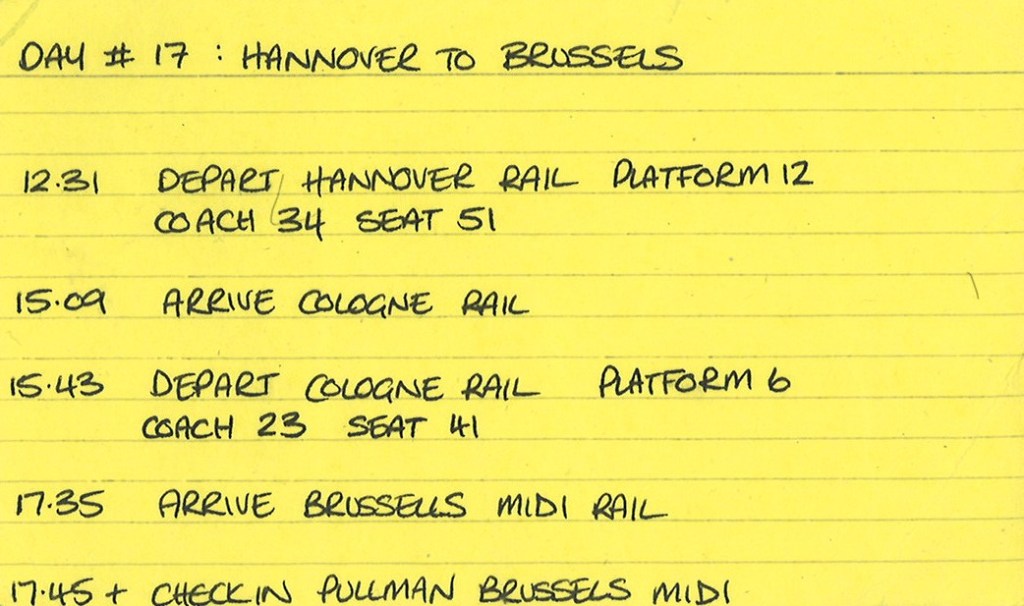 DAY # 17 : HANNOVER TO BRUSSELS
12.31 DEPART HANNOVER RAIL PLATFORM 12
COACH 34 SEAT 51
15.09 ARRIVE COLOGNE RAIL
15.43 DEPART COLOGNE RAIL PLATFORM 6
COACH 23 SEAT 41
17.35 ARRIVE BRUSSELLS MIDI RAIL
17.45 + CHECK IN PULLMAN BRUSSELS MIDI